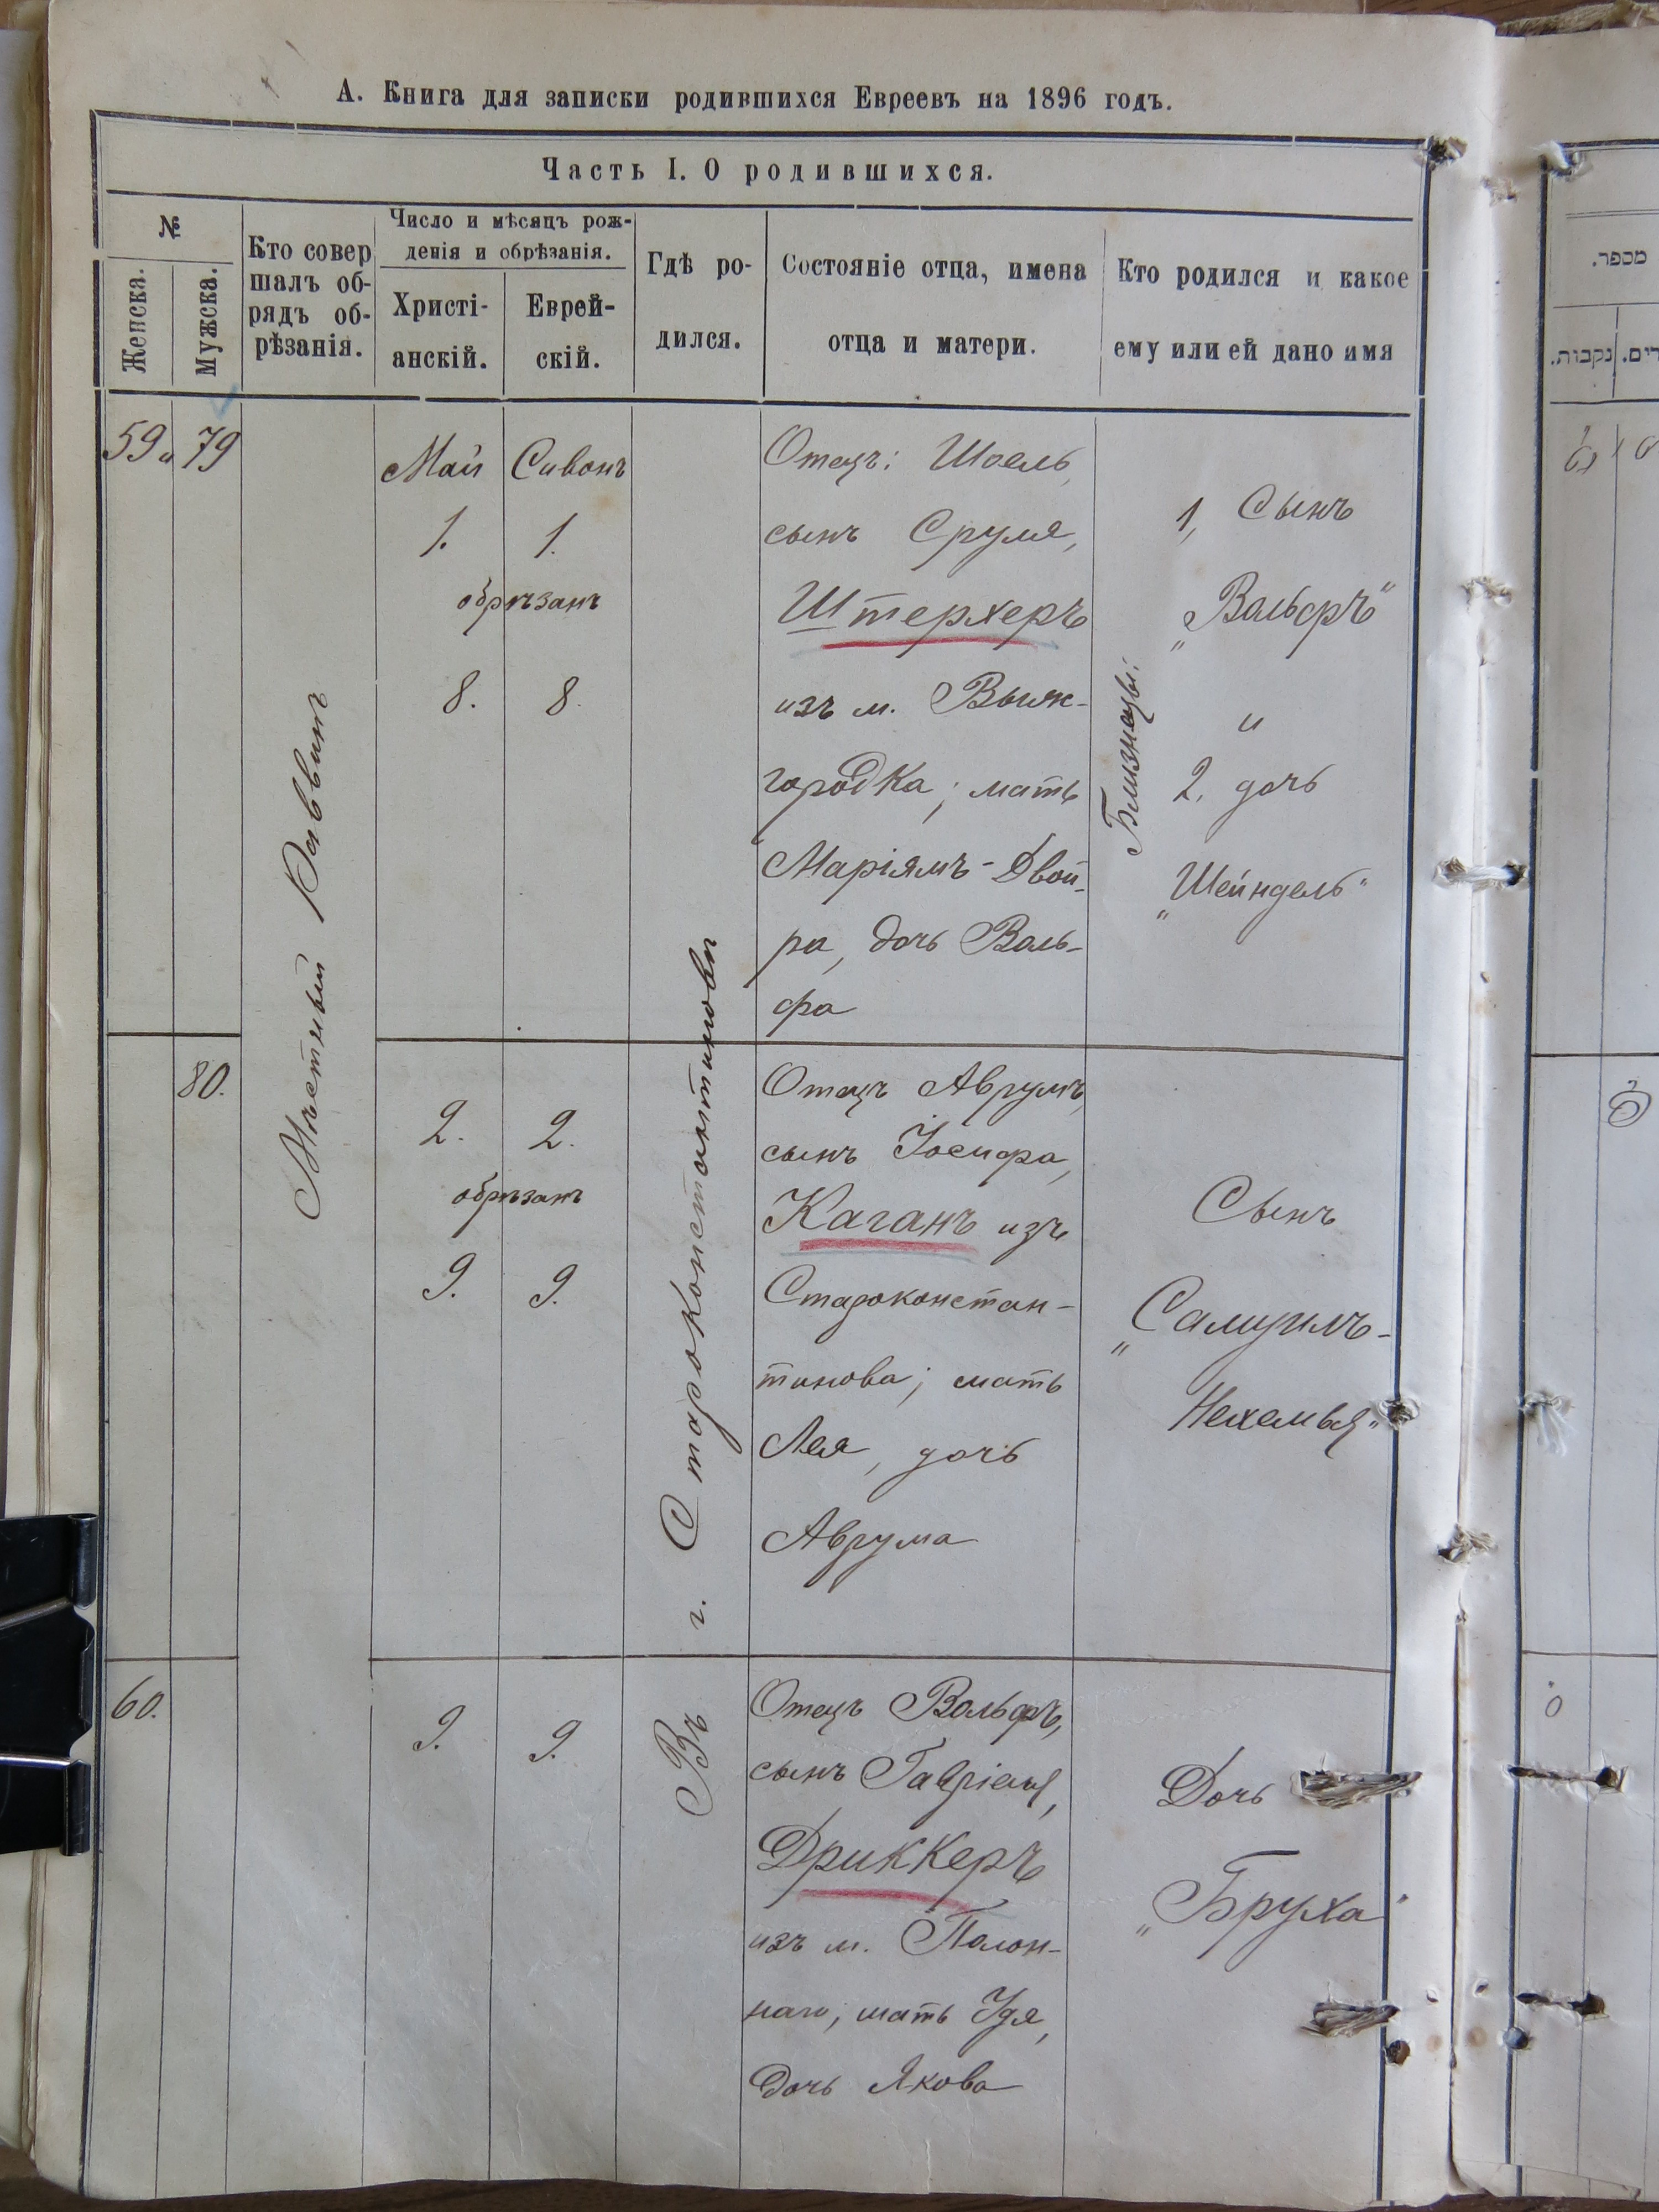 А. Книга для записки родившихся Евреевъ на 1896 годъ.
Часть I. О родившихся.
№
Женска.
Мужска.
Кто совер
шалъ об-
рядъ об-
рѣзанія.
Число и мѣсяцъ рож-
денія и обрѣзанія.
Христі-
анскій.
Еврей-
скій.
Гдѣ ро-
дился.
Состояніе отца, имена
отца и матери.
Кто родился и какое
ему или ей дано имя
59 и 79
Мѣстный Раввинъ
Май Сивонъ
1. 1.
обрѣзанъ
8. 8.
Въ г. Староконстантиновѣ
Отецъ: Шоель,
сынъ Сруля,
Штерхеръ
изъ м. Выж-
городка; мать
Маріямъ-Двой-
ра, дочь Воль-
фа
Близнецы:
1, Сынъ
„Вольфъ"
и
2, дочь
„Шейндель"
80.
2. 2.
обрѣзанъ
9. 9.
Отецъ Аврумъ,
сынъ Іосифа,
Каганъ изъ
Староконстан-
тинова; мать
Лея, дочь
Аврума
Сынъ
„Самуилъ-
Нехемья"
60.
9. 9.
Отецъ Вольфъ,
сынъ Гавріеля,
Дриккеръ
изъ м. Полон-
наго; мать Удя,
дочь Якова
Дочь
„Бруха"
מספר.
נקבות.